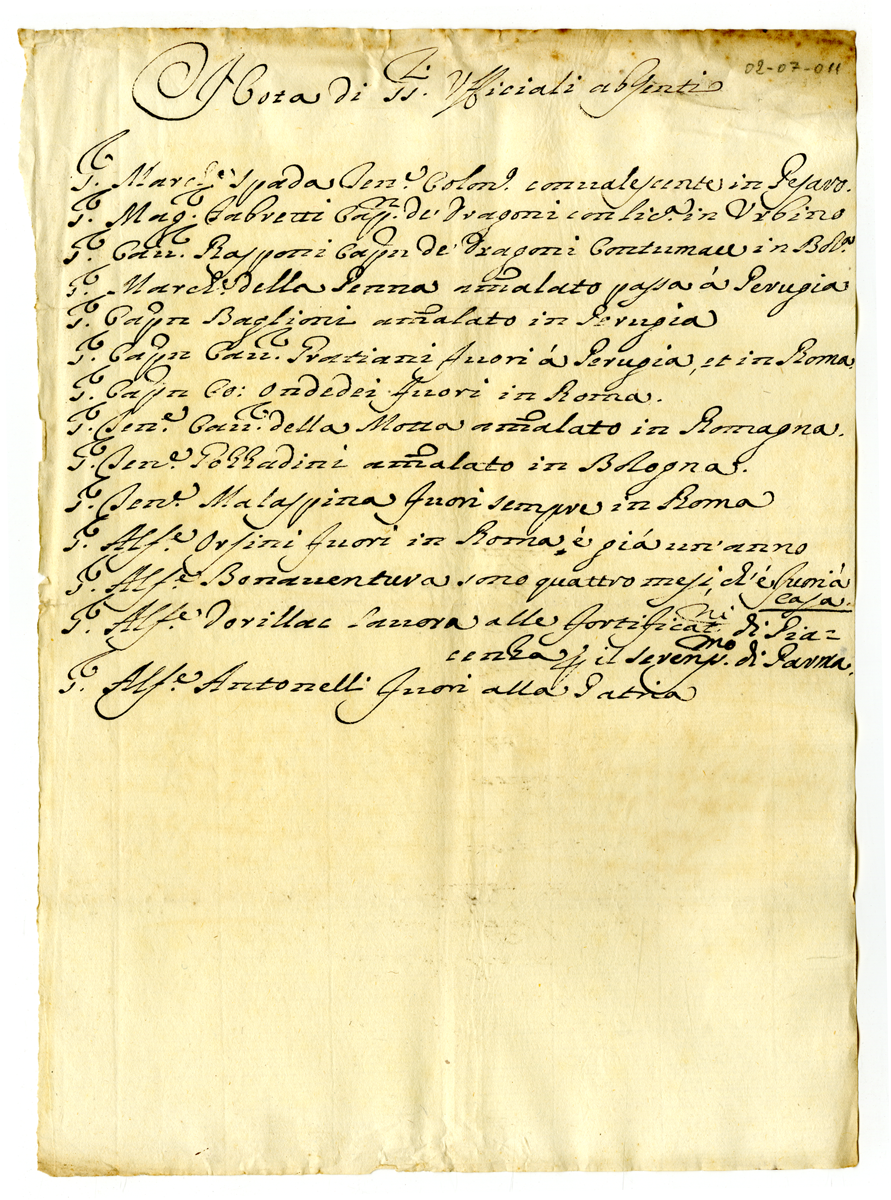 02-07-011
Nota di SS.i Ufficiali absenti
S.r March.e Spada Ten.e Colon.o conualescente in Pesaro.
S.r Mag.r Fabretti Cap.n de' Dragoni con lic.a in Urbino
S.r Cau.r Rasponi Capn de' Dragoni Contumace in Bol.a
S.r March.e della Penna am̃alato passa á Perugia
S.r Capn Baglioni am̃alato in Perugia
S.r Capn Cau.r Gratiani fuori á Perugia, et in Roma.
S.r Capn Co: Ondedei fuori in Roma.
S.r Ten.e Cau.r della Motta am̃alato in Romagna.
S.r Ten.e Pozzadini am̃alato in Bologna.
S.r Ten.e Malaspina fuori sempre in Roma
S.r Alf.e Orsini fuori in Roma, é giá un'anno
S.r Alf.e Bonauentura sono quattro mesi, ch'é fuori á
casa.
S.r Alf.e Dorillac lauora alle fortificat.ni di Pia=
cenza p il Seren.mo S.r di Parma.
S.r Alf.e Antonelli fuori alla Patria